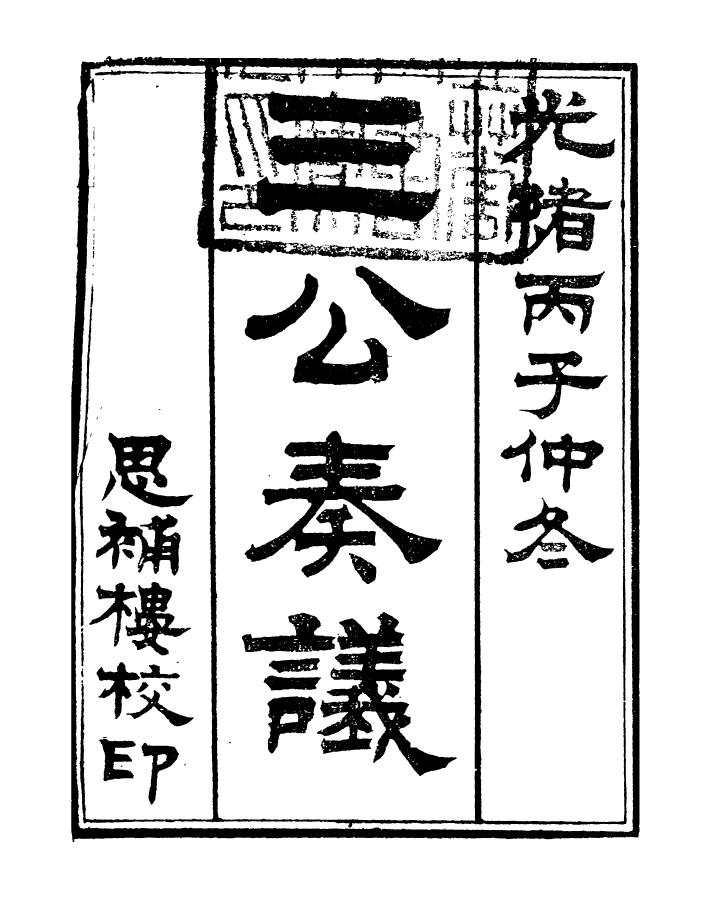 光緒丙子仲冬
三公奏議
思補樓校印